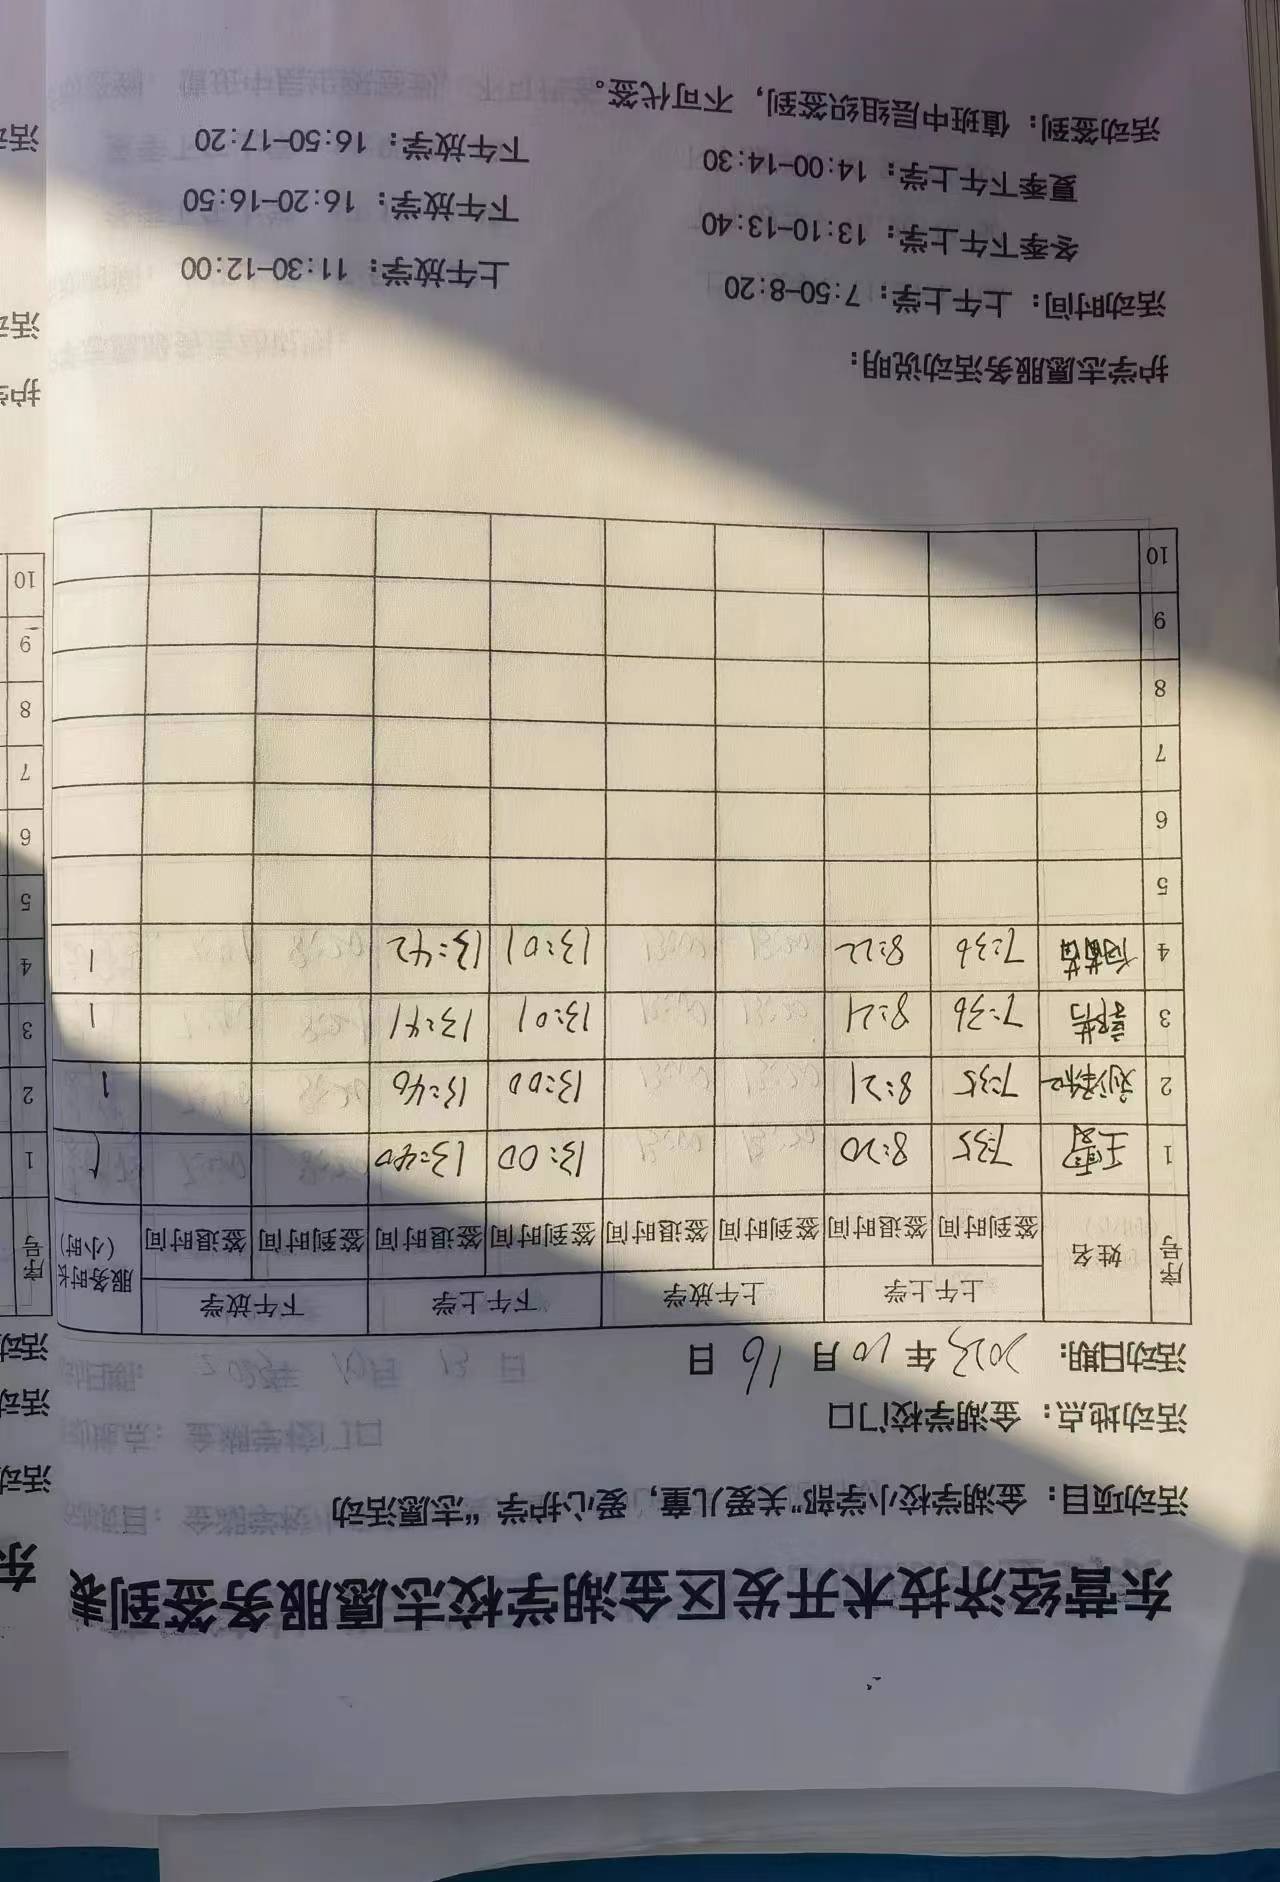 东营经济技术开发区金湖学校志愿服务签到表
活动项目：金湖学校小学部"关爱儿童，爱心护学"志愿活动
活动地点：金湖学校门口
活动日期：2023年10月16日
序号 姓名 上午上学 上午放学 下午上学 下午放学 服务时长（小时）
签到时间 签退时间 签到时间 签退时间 签到时间 签退时间 签到时间 签退时间
1 7:35 8:20 13:00 13:40 1
2 7:35 8:21 13:00 13:40 1
3 7:36 8:21 13:01 13:41 1
4 7:36 8:22 13:01 13:42 1
5
6
7
8
9
10
护学志愿服务活动说明：
活动时间：上午上学：7:50-8:20 上午放学：11:30-12:00
冬季下午上学：13:10-13:40 下午放学：16:20-16:50
夏季下午上学：14:00-14:30 下午放学：16:50-17:20
活动签到：值班中层组织签到，不可代签。
序号
1
2
3
4
5
6
7
8
9
10